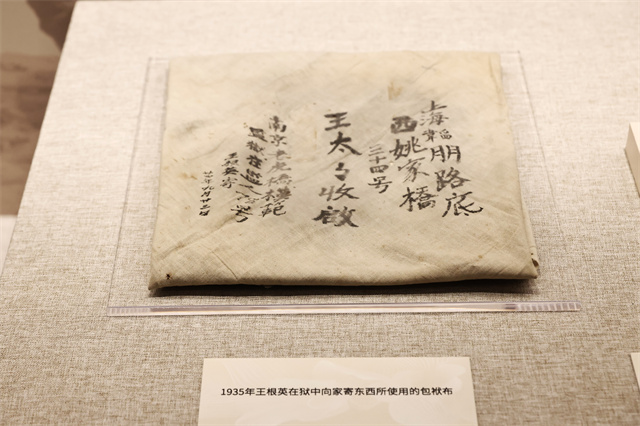 上海韜朋路底
西姚家橋
三十四号
王太々收啟
南京老虎橋模範
王根英寄
1935年王根英在狱中向家寄东西所使用的包袱布